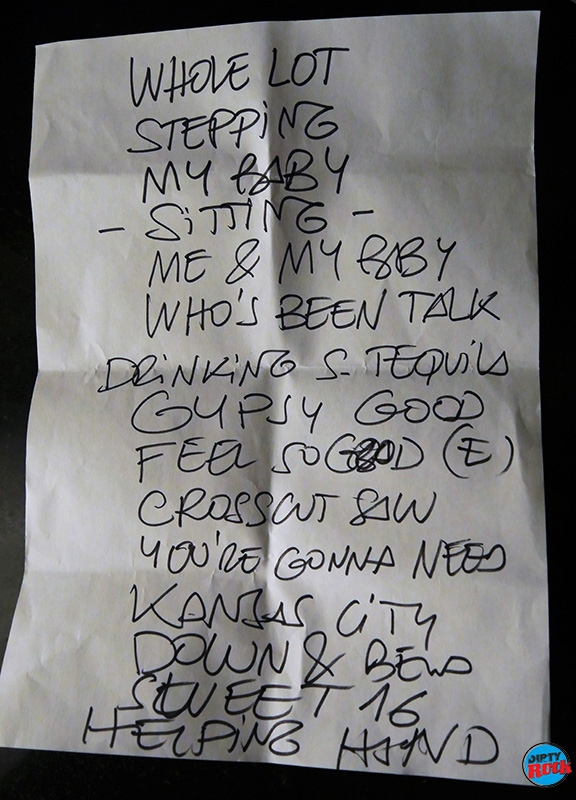 WHOLE LOT
STEPPING
MY BABY
- SITTING -
ME & MY BABY
WHO'S BEEN TALK
DRINKING S. TEQUILA
GYPSY GOOD
FEEL SO GOOD (E)
CROSSCUT SAW
YOU'RE GONNA NEED
KANSAS CITY
DOWN & BELO
SWEET 16
HELPING HAND
DIRTY
Rock